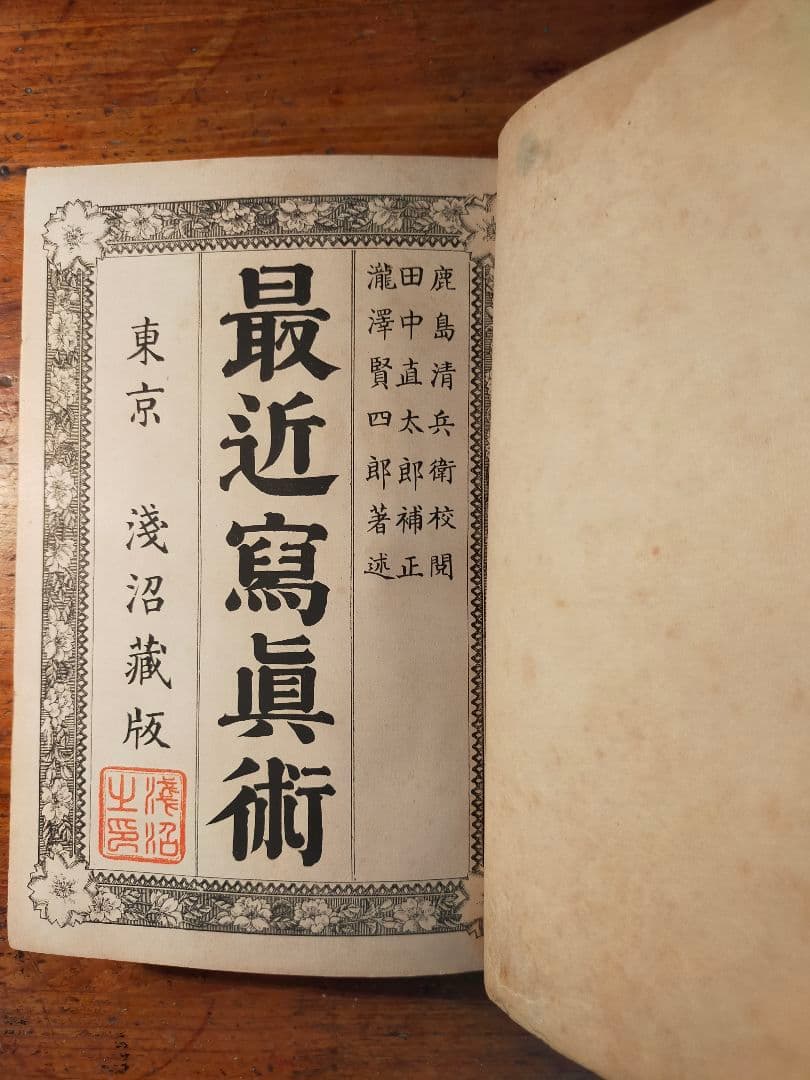 鹿島清兵衛校閲
田中直太郎補正
瀧澤賢四郎著述
最近寫眞術
東京 淺沼藏版
淺沼
之印